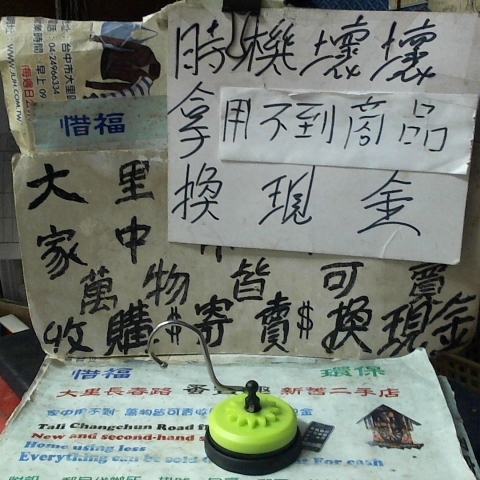 台中市大里區
04-24966334
美時間：早上 09
(每週日
WWW.JLPH.COM.TW
惜福
時機壞壞
拿用不到商品
換現金
大里
家中
萬物皆可買
收購$寄賣$換現金
惜福 環保
大里長春路 番 新舊二手店
家中用不到 萬物皆可賣收 金
Tali Changchun Road f
New and second-hand s
Home using less
Everything can be sold For cash